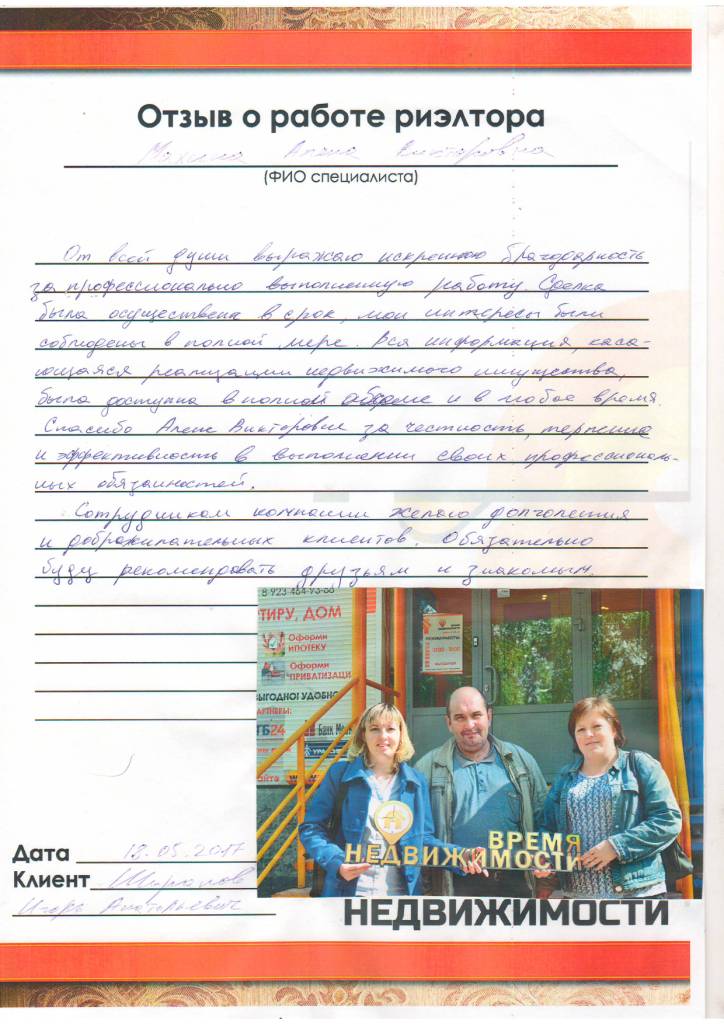 Отзыв о работе риэлтора
Викторовна
(ФИО специалиста)
От всей души выражаю искреннюю благодарность
за профессионально выполненную работу. Сделка
была осуществлена в срок, мои интересы были
соблюдены в полной мере. Вся информация, каса-
ющаяся реализации недвижимого имущества,
была доступна в полном объеме и в любое время.
Спасибо Алене Викторовне за честность, терпение
и эффективность в выполнении своих профессиональ-
ных обязанностей.
Сотрудникам компании желаю долголетия
и доброжелательных клиентов. Обязательно
буду рекомендовать друзьям и знакомым.
8 923-484-93-88
РТИРУ, ДОМ
Оформи
ИПОТЕКУ
Оформи
ПРИВАТИЗАЦИ
ВЫГОДНО! УДОБНО
АРТНЕРЫ:
ТБ24
Банк Мос
айта
ВРЕМЯ
НЕДВИЖИМОСТИ
Дата 18.05.2017
Клиент
Игорь Анатольевич
НЕДВИЖИМОСТИ